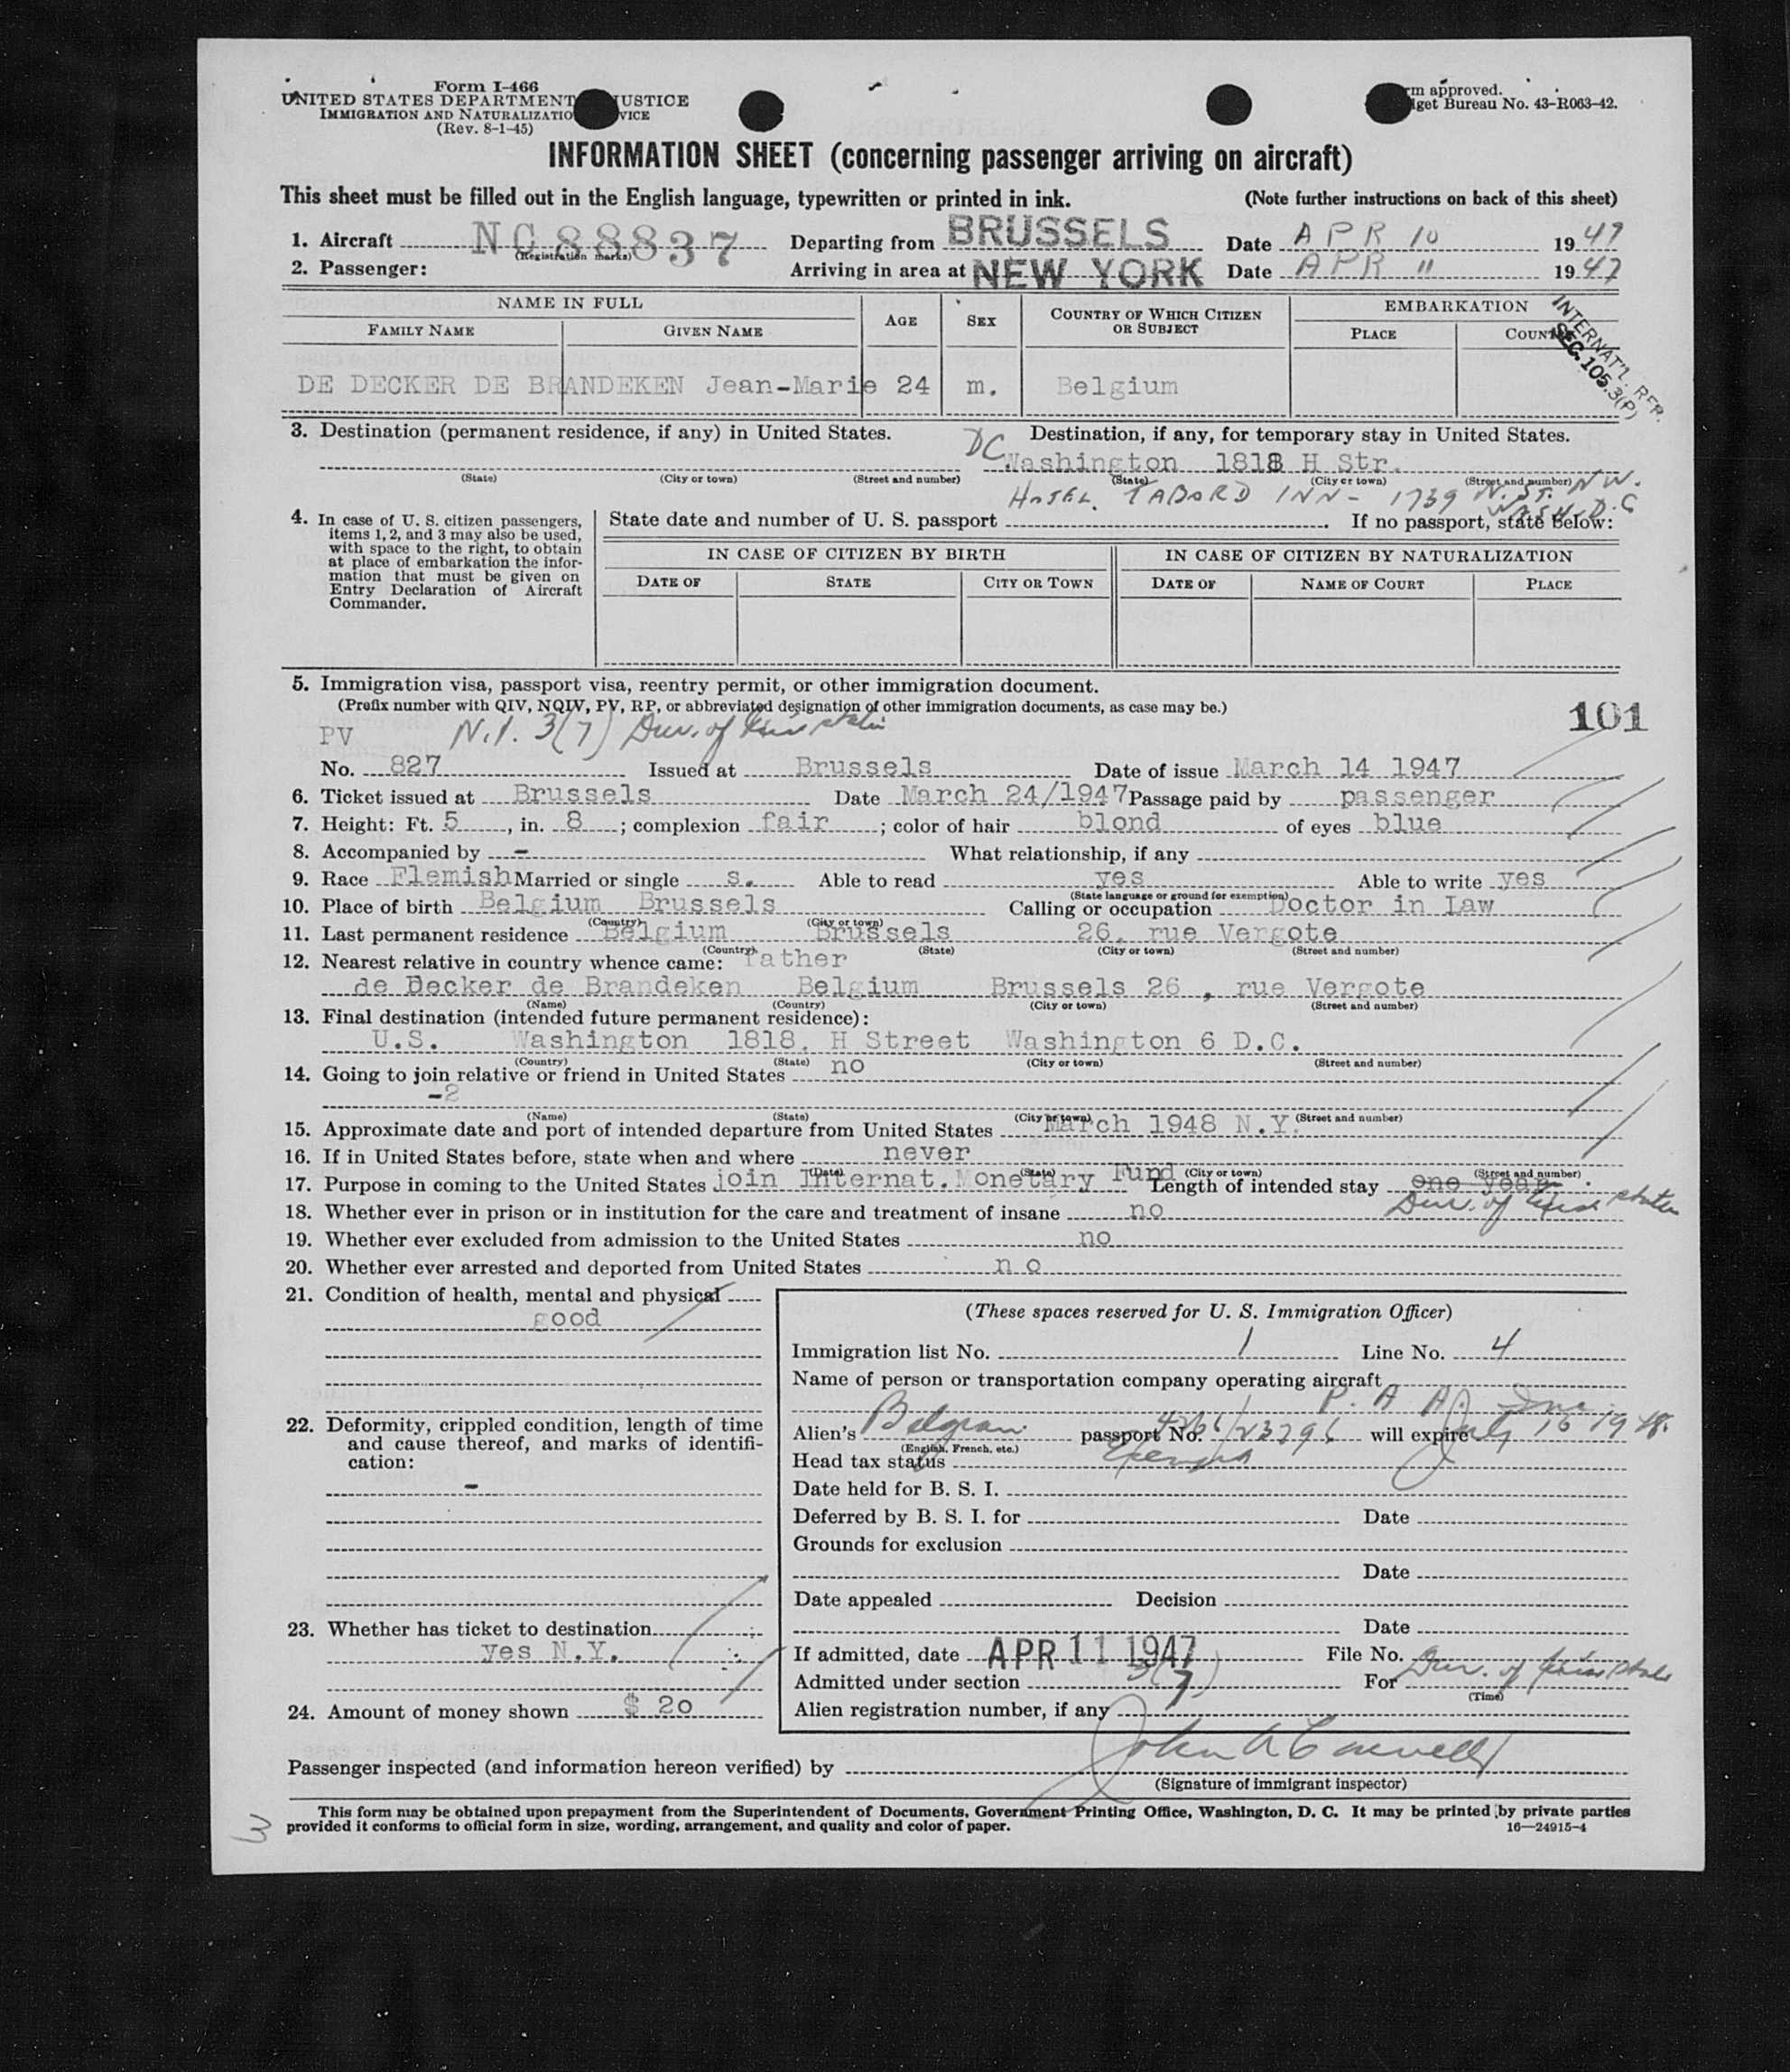 Form I-466
UNITED STATES DEPARTMENT JUSTICE
IMMIGRATION AND NATURALIZATIO VICE
(Rev. 8-1-45)
rm approved.
lget Bureau No. 43-R063-42.
INFORMATION SHEET (concerning passenger arriving on aircraft)
This sheet must be filled out in the English language, typewritten or printed in ink. (Note further instructions on back of this sheet)
1. Aircraft NC88837 Departing from BRUSSELS Date APR 10 1947
(Registration marks)
2. Passenger: Arriving in area at NEW YORK Date APR 11 1947
NAME IN FULL AGE SEX COUNTRY OF WHICH CITIZEN OR SUBJECT EMBARKATION
FAMILY NAME GIVEN NAME PLACE COUNT
INTERNAT'L. REP.
SEC. 105.3(P)
DE DECKER DE BRANDEKEN Jean-Marie 24 m. Belgium
3. Destination (permanent residence, if any) in United States. Destination, if any, for temporary stay in United States.
DC Washington 1818 H Str.
(State) (City or town) (Street and number) (State) (City or town) (Street and number)
HOTEL. TABARD INN - 1739 N. ST. NW.
WASH-D.C
4. In case of U. S. citizen passengers, items 1, 2, and 3 may also be used, with space to the right, to obtain at place of embarkation the information that must be given on Entry Declaration of Aircraft Commander.
State date and number of U. S. passport . If no passport, state below:
IN CASE OF CITIZEN BY BIRTH IN CASE OF CITIZEN BY NATURALIZATION
DATE OF STATE CITY OR TOWN DATE OF NAME OF COURT PLACE
5. Immigration visa, passport visa, reentry permit, or other immigration document.
(Prefix number with QIV, NQIV, PV, RP, or abbreviated designation of other immigration documents, as case may be.)
101
PV N.I. 3(7) Dur. of
No. 827 Issued at Brussels Date of issue March 14 1947
6. Ticket issued at Brussels Date March 24/1947 Passage paid by passenger
7. Height: Ft. 5, in. 8; complexion fair; color of hair blond of eyes blue
8. Accompanied by - What relationship, if any
9. Race Flemish Married or single s. Able to read yes Able to write yes
(State language or ground for exemption)
10. Place of birth Belgium Brussels Calling or occupation Doctor in Law
(Country) (City or town)
11. Last permanent residence Belgium Brussels 26, rue Vergote
(Country) (State) (City or town) (Street and number)
12. Nearest relative in country whence came: father
de Decker de Brandeken Belgium Brussels 26 , rue Vergote
(Name) (Country) (City or town) (Street and number)
13. Final destination (intended future permanent residence):
U.S. Washington 1818, H Street Washington 6 D.C.
(Country) (State) (City or town) (Street and number)
14. Going to join relative or friend in United States no
-2
(Name) (State) (City or town) (Street and number)
15. Approximate date and port of intended departure from United States March 1948 N.Y.
16. If in United States before, state when and where never
(Date) (State) (City or town) (Street and number)
17. Purpose in coming to the United States join Internat. Monetary Fund Length of intended stay one year
Dur. of
18. Whether ever in prison or in institution for the care and treatment of insane no
19. Whether ever excluded from admission to the United States no
20. Whether ever arrested and deported from United States no
21. Condition of health, mental and physical
good
22. Deformity, crippled condition, length of time and cause thereof, and marks of identification:
-
23. Whether has ticket to destination
yes N.Y.
24. Amount of money shown $ 20
(These spaces reserved for U. S. Immigration Officer)
Immigration list No. 1 Line No. 4
Name of person or transportation company operating aircraft
P. A A. Inc.
Alien's Belgian passport No. will expire July 1948.
(English, French, etc.)
Head tax status Exempt
Date held for B. S. I.
Deferred by B. S. I. for Date
Grounds for exclusion
Date
Date appealed Decision
Date
If admitted, date APR 11 1947 File No.
Admitted under section 3(7) For Dur. of
(Time)
Alien registration number, if any
Passenger inspected (and information hereon verified) by John
(Signature of immigrant inspector)
This form may be obtained upon prepayment from the Superintendent of Documents, Government Printing Office, Washington, D. C. It may be printed by private parties
provided it conforms to official form in size, wording, arrangement, and quality and color of paper. 16—24915-4
3